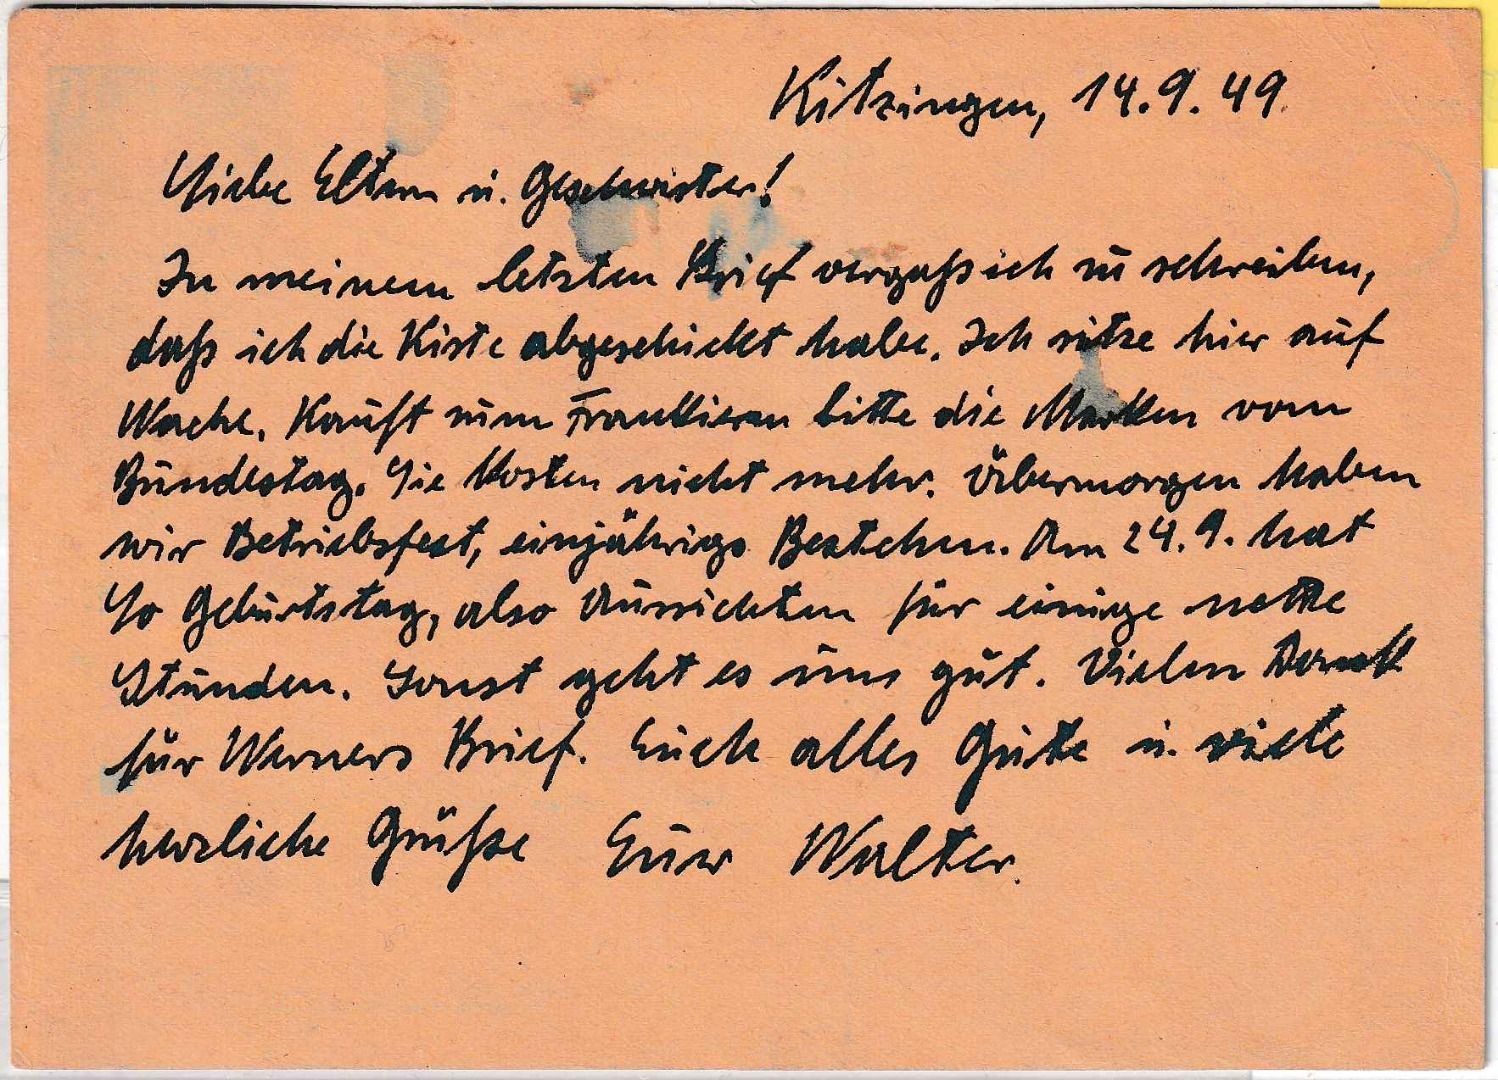 Kitzingen, 14.9.49.
Liebe Eltern u. Geschwister!
In meinem letzten Brief vergaß ich zu schreiben,
daß ich die Kiste abgeschickt habe. Ich sitze hier auf
Wache. Kauft zum Frankieren bitte die Marken vom
Bundestag. Sie kosten nicht mehr. Übermorgen haben
wir Betriebsfest, einjährigs Bestehen. Am 24.9. hat
Lo Geburtstag, also Aussichten für einige nette
Stunden. Sonst geht es uns gut. Vielen Dank
für Werners Brief. Euch alles Gute u. viele
herzliche Grüße Euer Walter.